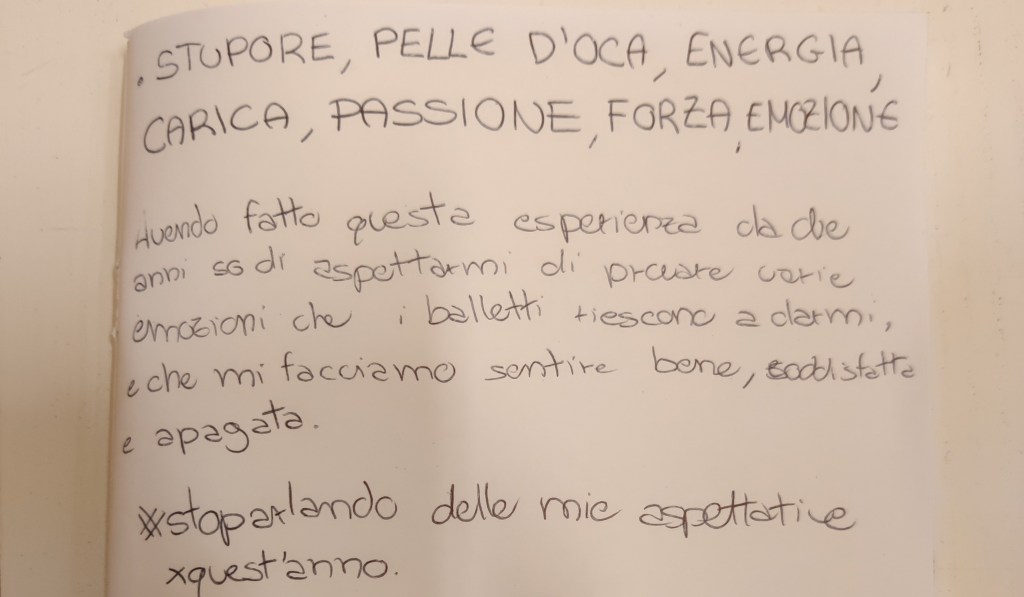 . STUPORE, PELLE D'OCA, ENERGIA,
CARICA, PASSIONE, FORZA, EMOZIONE
Avendo fatto questa esperienza da due
anni so di aspettarmi di provare varie
emozioni che i balletti riescono a darmi,
e che mi facciamo sentire bene, soddisfatta
e apagata.
*sto parlando delle mie aspettative
xquest'anno.